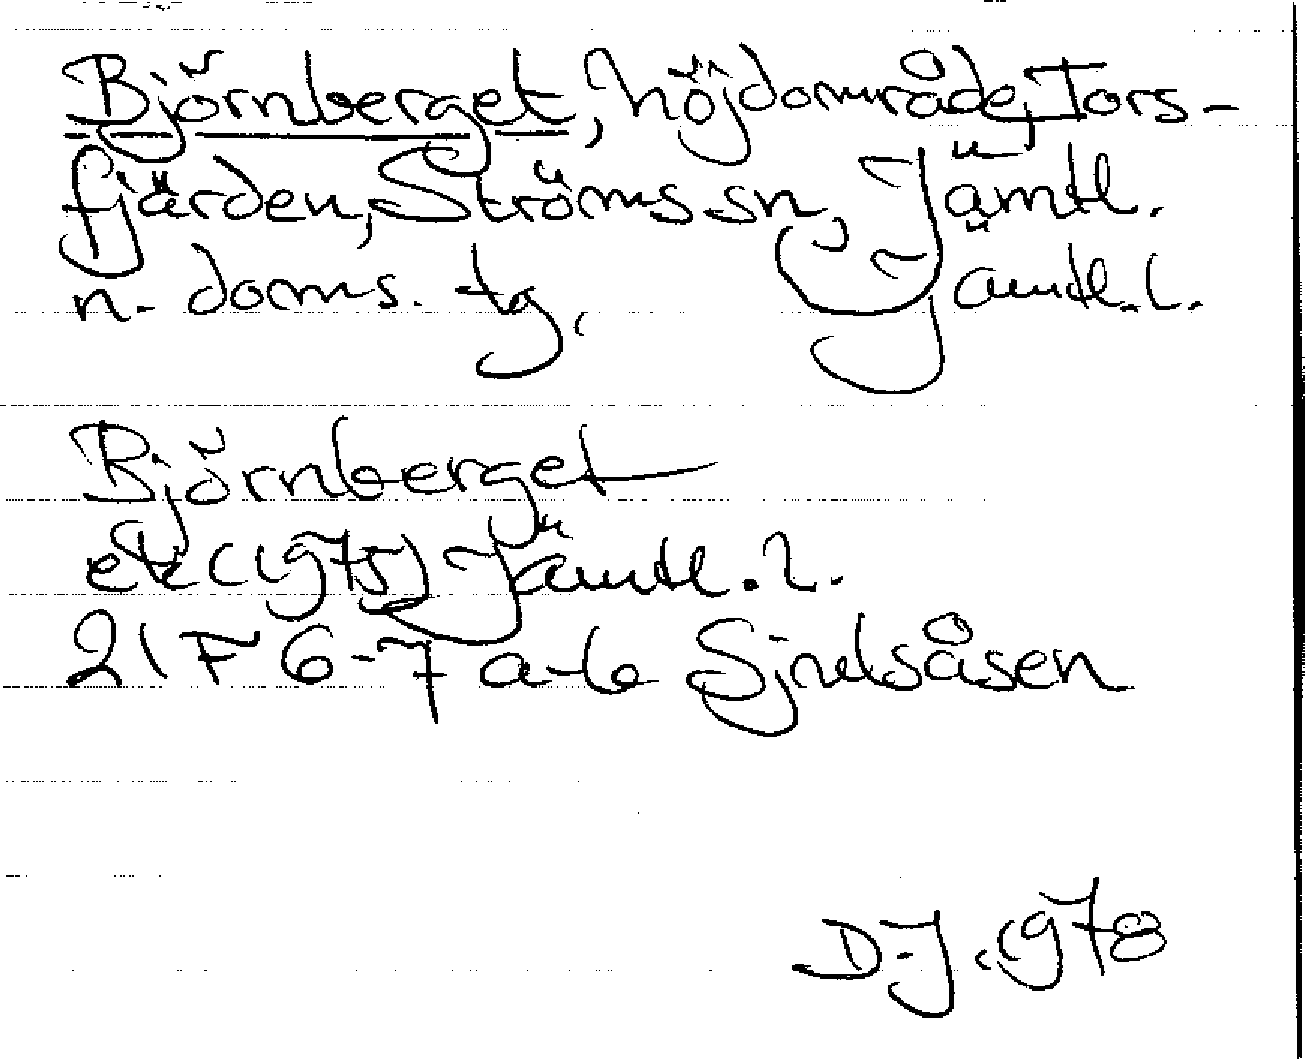 Björnberget, höjdområde, Tors-
fjärden, Ströms sn, Jämtl.
n. doms. tg, Jämtl. l.
Björnberget
ek (1975) Jämtl. l.
21 F 6-7 a-b Sjulsåsen
D.J. 1978